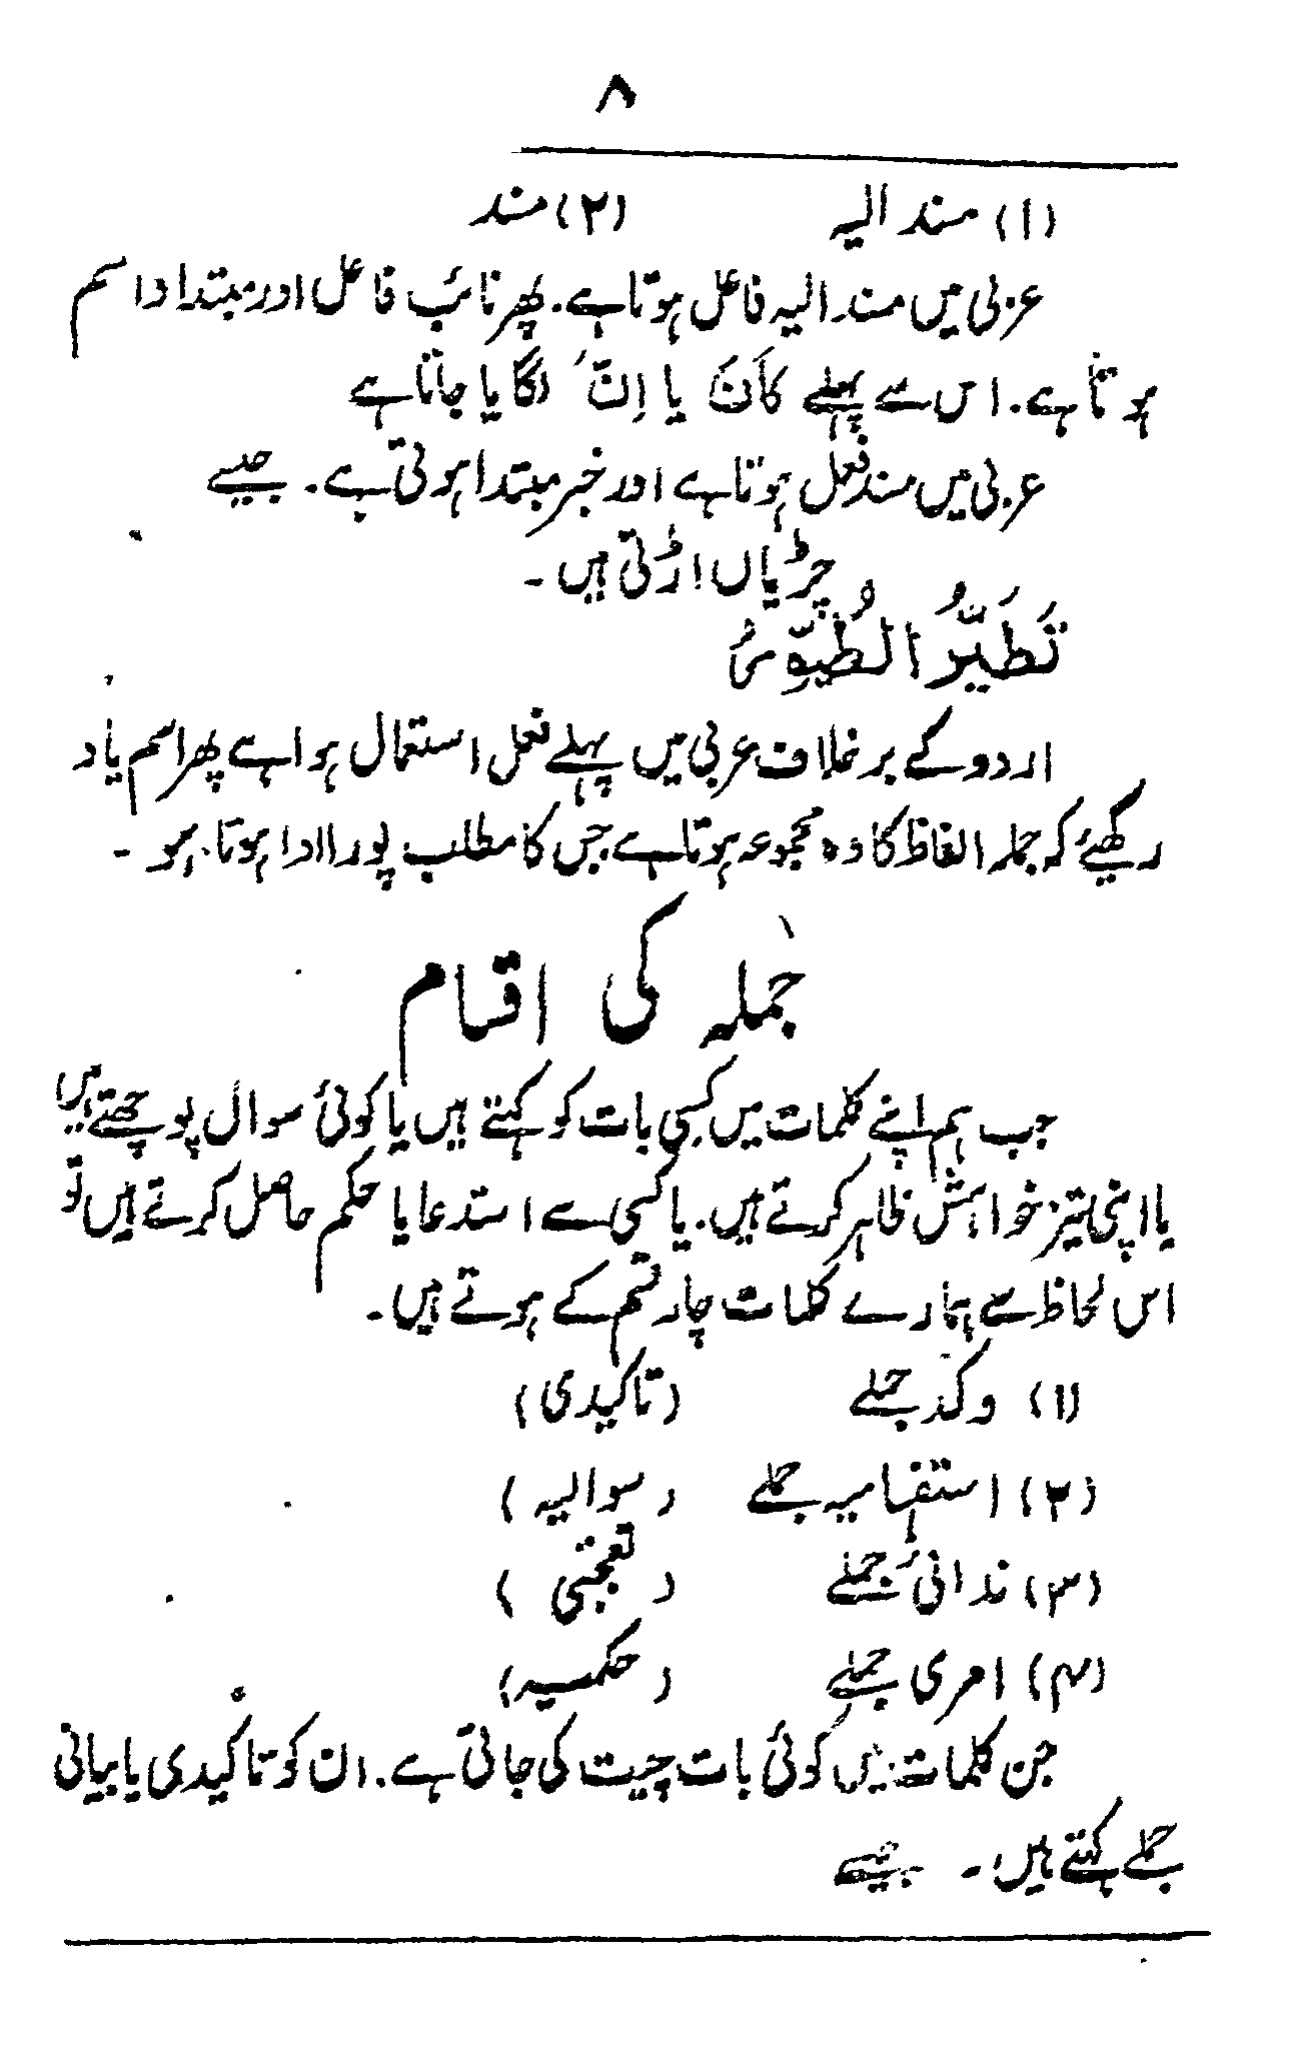 ۸
(۱) مسند الیہ (۲) مسند
عربی میں مسند الیہ فاعل ہوتا ہے. پھر نائب فاعل اور مبتدا و اسم
ہوتا ہے. اس سے پہلے کَانَ یا اِنَّ لگایا جاتا ہے
عربی میں مسند فعل ہوتا ہے اور خبر مبتدا ہوتی ہے. جیسے
چڑیاں اڑتی ہیں ۔
تَطَیَّرُ الطُیُوّرُ
اردو کے برخلاف عربی میں پہلے فعل استعمال ہوا ہے پھر اسم یاد
رکھیئے کہ جملہ الفاظ کا وہ مجموعہ ہوتا ہے جس کا مطلب پورا ادا ہوتا ہو ۔
جملہ کی اقسام
جب ہم اپنے کلمات میں کسی بات کو کہتے ہیں یا کوئی سوال پوچھتے ہیں
یا اپنی تیز خواہش ظاہر کرتے ہیں. یا کسی سے استدعا یا حکم حاصل کرتے ہیں تو
اس لحاظ سے ہمارے کلمات چار قسم کے ہوتے ہیں ۔
(۱) وکد جملے (تاکیدی)
(۲) استفہامیہ جملے (سوالیہ)
(۳) ندائی جملے (تعجبی)
(۴) امری جملے (حکمیہ)
جن کلمات میں کوئی بات چیت کی جاتی ہے. ان کو تاکیدی یا بیانی
جملے کہتے ہیں ۔ جیسے